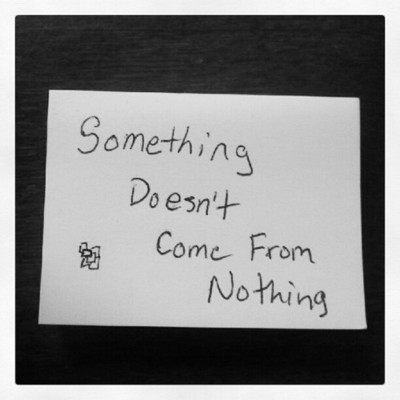 Something
Doesn't
Come From
Nothing